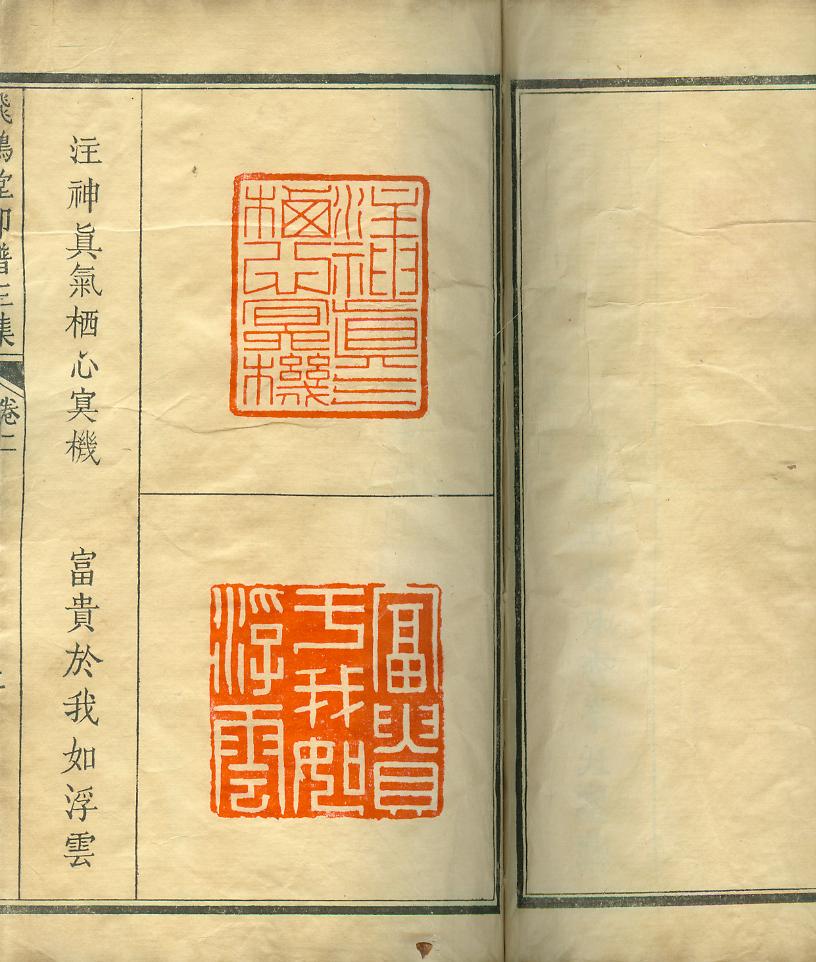 注神眞气
栖心冥機
富貴
于我如
浮雲
注神眞氣栖心寞機
富貴於我如浮雲
飛鴻堂印譜三集
卷二